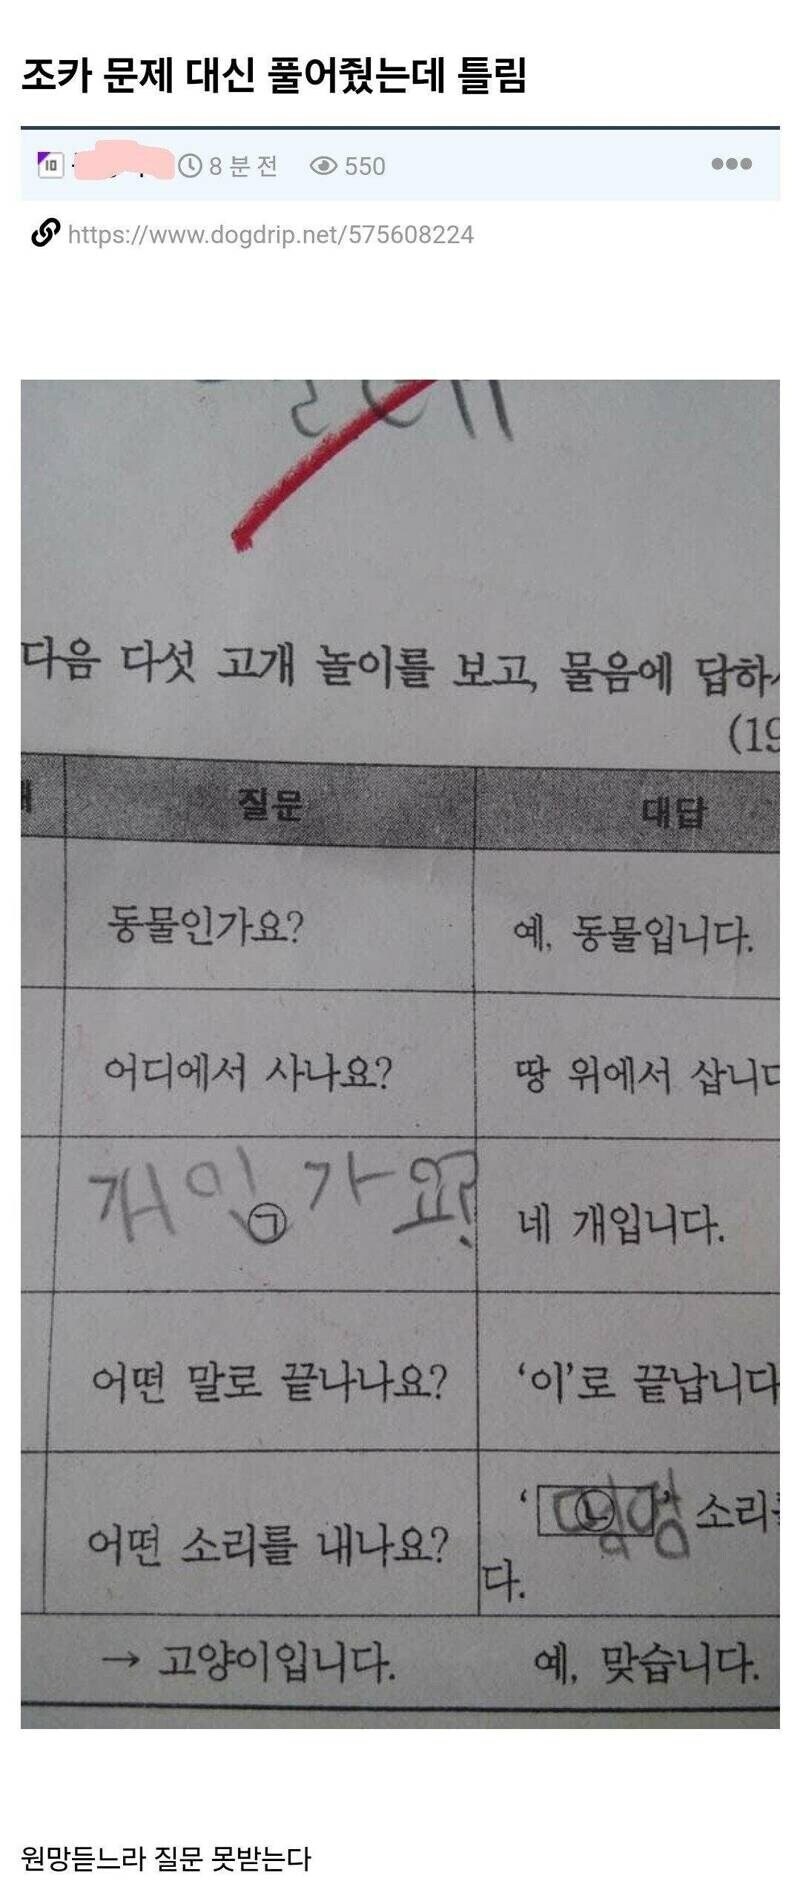 조카 문제 대신 풀어줬는데 틀림
8 분 전 550
https://www.dogdrip.net/575608224
다음 다섯 고개 놀이를 보고, 물음에 답하
(19
질문 대답
동물인가요? 예, 동물입니다.
어디에서 사나요? 땅 위에서 삽니다
개인가요? 네 개입니다.
㉠
어떤 말로 끝나나요? ‘이’로 끝납니다
어떤 소리를 내나요? ‘㉡’ 소리를
다.
→ 고양이입니다. 예, 맞습니다.
원망듣느라 질문 못받는다